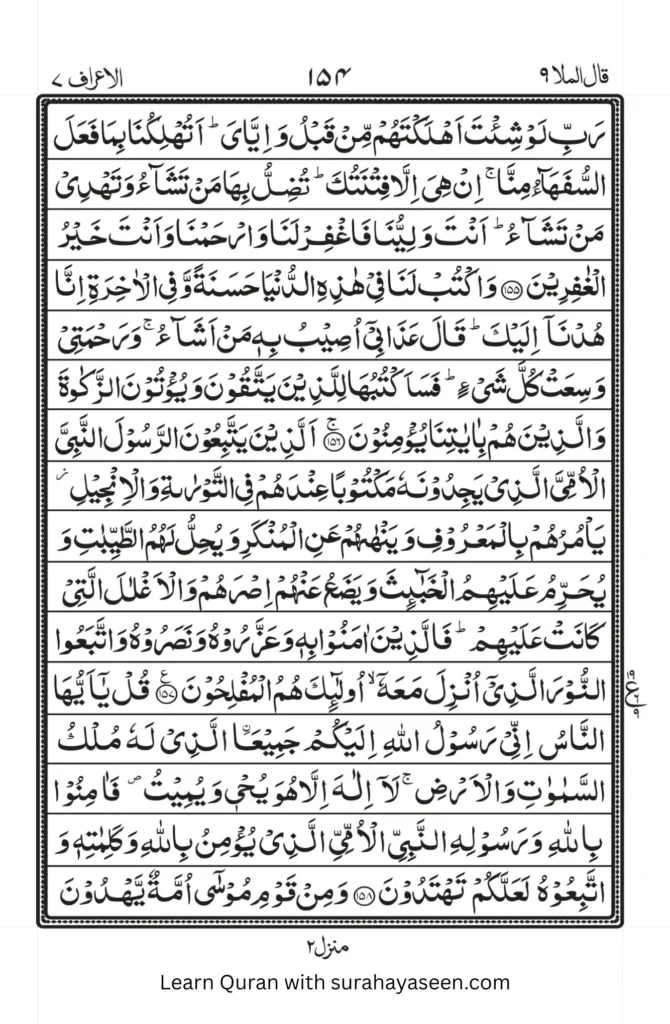 قال الملا ۹ ۱۵۴ الاعراف ۷
رَبِّ لَوْ شِئْتَ اَهْلَكْتَهُمْ مِّنْ قَبْلُ وَ اِیَّایَ ؕ اَتُهْلِكُنَا بِمَا فَعَلَ
السُّفَهَآءُ مِنَّا ۚ اِنْ هِیَ اِلَّا فِتْنَتُكَ ؕ تُضِلُّ بِهَا مَنْ تَشَآءُ وَ تَهْدِیْ
مَنْ تَشَآءُ ؕ اَنْتَ وَلِیُّنَا فَاغْفِرْ لَنَا وَ ارْحَمْنَا وَ اَنْتَ خَیْرُ
الْغٰفِرِیْنَ ﴿۱۵۵﴾ وَ اكْتُبْ لَنَا فِیْ هٰذِهِ الدُّنْیَا حَسَنَةً وَّ فِی الْاٰخِرَةِ اِنَّا
هُدْنَاۤ اِلَیْكَ ؕ قَالَ عَذَابِیْۤ اُصِیْبُ بِهٖ مَنْ اَشَآءُ ۚ وَ رَحْمَتِیْ
وَسِعَتْ كُلَّ شَیْءٍ ؕ فَسَاَكْتُبُهَا لِلَّذِیْنَ یَتَّقُوْنَ وَ یُؤْتُوْنَ الزَّكٰوةَ
وَ الَّذِیْنَ هُمْ بِاٰیٰتِنَا یُؤْمِنُوْنَ ﴿۱۵۶﴾ۚ اَلَّذِیْنَ یَتَّبِعُوْنَ الرَّسُوْلَ النَّبِیَّ
الْاُمِّیَّ الَّذِیْ یَجِدُوْنَهٗ مَكْتُوْبًا عِنْدَهُمْ فِی التَّوْرٰىةِ وَ الْاِنْجِیْلِ ؗ
یَاْمُرُهُمْ بِالْمَعْرُوْفِ وَ یَنْهٰىهُمْ عَنِ الْمُنْكَرِ وَ یُحِلُّ لَهُمُ الطَّیِّبٰتِ وَ
یُحَرِّمُ عَلَیْهِمُ الْخَبٰٓىِٕثَ وَ یَضَعُ عَنْهُمْ اِصْرَهُمْ وَ الْاَغْلٰلَ الَّتِیْ
كَانَتْ عَلَیْهِمْ ؕ فَالَّذِیْنَ اٰمَنُوْا بِهٖ وَ عَزَّرُوْهُ وَ نَصَرُوْهُ وَ اتَّبَعُوا
النُّوْرَ الَّذِیْۤ اُنْزِلَ مَعَهٗۤ ۙ اُولٰٓىِٕكَ هُمُ الْمُفْلِحُوْنَ ﴿۱۵۷﴾ع قُلْ یٰۤاَیُّهَا
النَّاسُ اِنِّیْ رَسُوْلُ اللّٰهِ اِلَیْكُمْ جَمِیْعَا ۣ الَّذِیْ لَهٗ مُلْكُ
السَّمٰوٰتِ وَ الْاَرْضِ ۚ لَاۤ اِلٰهَ اِلَّا هُوَ یُحْیٖ وَ یُمِیْتُ ۪ فَاٰمِنُوْا
بِاللّٰهِ وَ رَسُوْلِهِ النَّبِیِّ الْاُمِّیِّ الَّذِیْ یُؤْمِنُ بِاللّٰهِ وَ كَلِمٰتِهٖ وَ
اتَّبِعُوْهُ لَعَلَّكُمْ تَهْتَدُوْنَ ﴿۱۵۸﴾ وَ مِنْ قَوْمِ مُوْسٰۤی اُمَّةٌ یَّهْدُوْنَ
منزل ۲
Learn Quran with surahayaseen.com